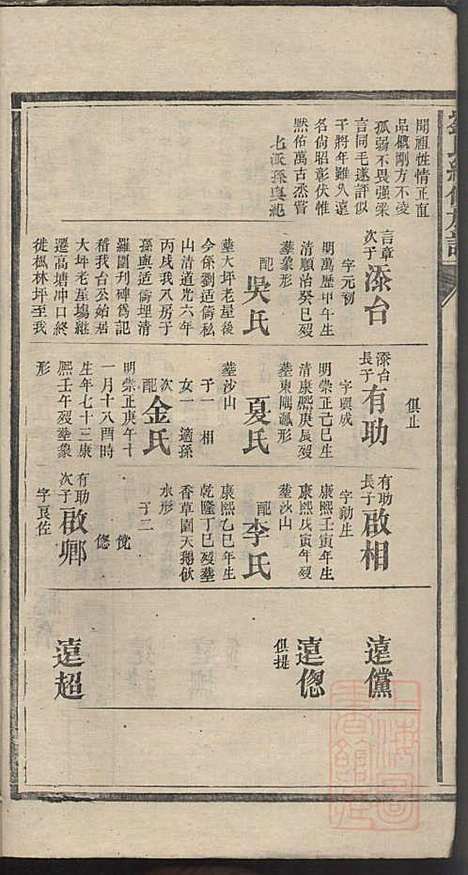 聞祖性情正直
品儀剛方不凌
孤弱不畏强梁
言同毛遂評似
干將年雖久遠
名尚昭彰伏惟
默佑萬古悉嘗
七派孫真純
言章
次子
添台
字元初
明萬歷甲午生
清順治癸巳殁
塟象形
配
吳氏
塟大坪老屋後
今係劉适儔私
山清道光六年
丙戌我八房于
孫與适儔埋清
羅圍刋碑爲記
稽我台公始居
大坪老屋塲繼
遷高塘冲口終
徙楓林坪至我
俱止
添台
長子
有助
字興成
明崇正己巳生
清康熙庚辰殁
塟東隅瓢形
配
夏氏
塟沙山
子一 相
女一 適孫
次
配
金氏
明崇正庚午十
一月十八酉時
生年七十三康
熙壬午殁塟象
形
有助
長子
啟相
字勳生
康熙壬寅年生
康熙戊寅年殁
塟沙山
配
李氏
康熙乙巳年生
乾隆丁巳殁塟
香草園天鵝伏
水形
子二
儻
偬
有助
次子
啟卿
字良佐
遠儻
遠偬
俱提
遠超